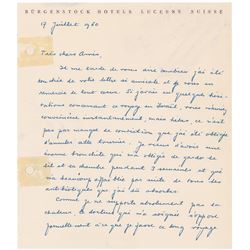 BÜRGENSTOCK HOTELS LUCERNE SUISSE
17 Juillet 1960
Très chers Amis,
Il me tarde de vous dire combien j'ai été
touchée de votre lettre si amicale et je vous en
remercie de tout cœur. Si j'avais eu quelque hési-
tation concernant ce voyage au Brésil, vous m'auriez
convaincue instantanément, mais hélas, ce n'est
pas par manque de conviction que j'ai été obligée
d'annuler cette tournée. Je viens d'avoir une
bronchite qui m'a obligée de garder le
lit et la chambre pendant 3 semaines et qui
m'a beaucoup affaiblie par suite de tous les
antibiotiques que j'ai dû absorber.
Comme je ne supporte absolument pas la
chaleur, le docteur qui m'a soignée s'oppose
formellement à ce que je fasse ce long voyage